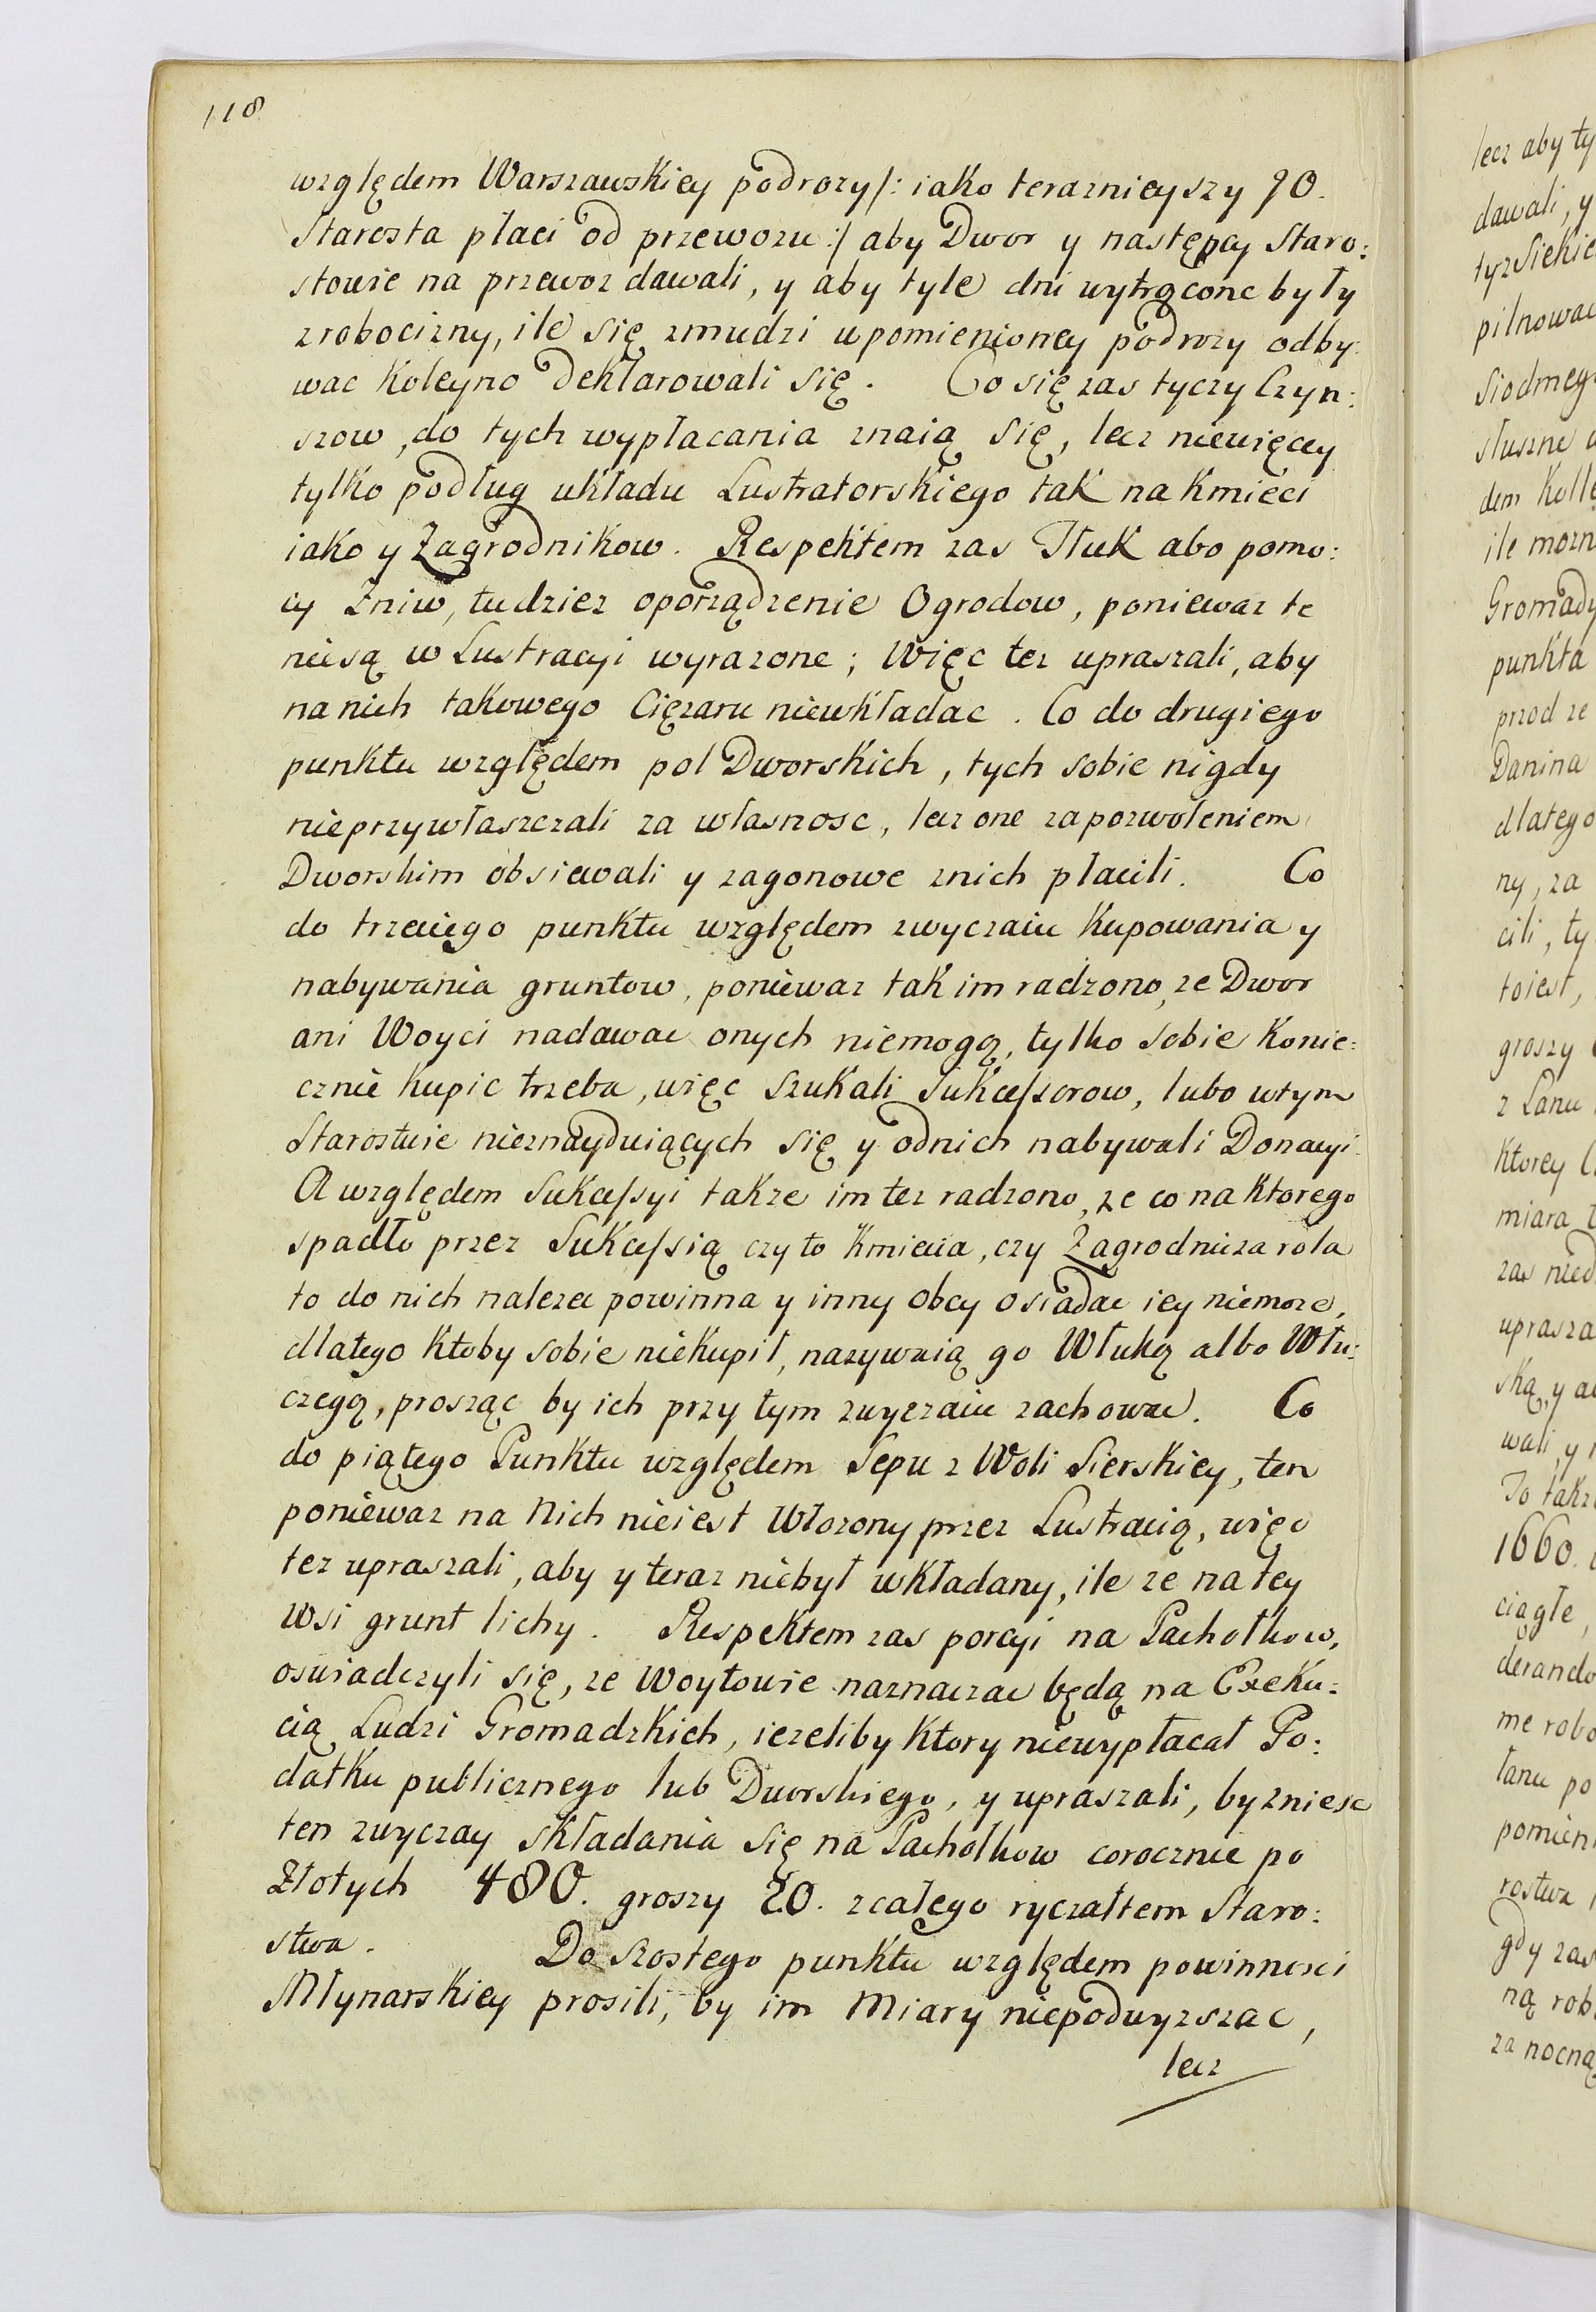 118
względem Warszawskiey podrozy /: iako teraznieyszy JO.
Starosta płaci od przewozu :/ aby Dwor y następcy Staro:
stowie na przewoz dawali, y aby tyle dni wytrącone były
z robocizny, ile się zmudzi w pomienioney podrozy odby:
wac koleyno deklarowali się. Co się zas tyczy Czyn:
szow, do tych wypłacania znaią się, lecz niewięcey
tylko podług układu Lustratorskiego tak na Kmieci
iako y Zagrodnikow. Respektem zas Tłuk abo pomo:
cy Zniw, tudziez oporządzenie Ogrodow, poniewaz te
niesą w Lustracyi wyrazone; Więc tez upraszali, aby
na nich takowego Cięzaru niewkładac. Co do drugiego
punktu względem pol Dworskich, tych sobie nigdy
nieprzywłaszczali za własnosc, lecz one za pozwoleniem
Dworskim obsiewali y zagonowe znich płacili. Co
do trzeciego punktu względem zwyczaiu Kupowania y
nabywania gruntow, poniewaz tak im radzono, ze Dwor
ani Woyci nadawac onych niemogą, tylko sobie Konie:
cznie kupic trzeba, więc szukali Sukcessorow, lubo wtym
Starostwie nieznayduiących się y odnich nabywali Donacyi.
A względem Sukcessyi takze im tez radzono, ze co na ktorego
spadło przez Sukcessią czy to Kmiecia, czy Zagrodnicza rola
to do nich nalezec powinna y inny obcy osiadac iey niemoze,
dlatego ktoby sobie niekupił, nazywaią go Włuką albo Włu:
czegą, prosząc by ich przy tym zwyczaiu zachowac. Co
do piątego Punktu względem Sepu z Woli Sierskiey, ten
poniewaz na Nich nieiest Włozony przez Lustracią, więc
tez upraszali, aby y teraz niebył wkładany, ile ze na tey
Wsi grunt lichy. Respektem zas porcyi na Pachołkow,
oswiadczyli się, ze Woytowie naznaczac będą na Exeku:
cią Ludzi Gromadzkich, iezeliby ktory niewypłacał Po:
datku publicznego lub Dworskiego, y upraszali, by zniesc
ten zwyczay składania się na Pachołkow corocznie po
Złotych 480. groszy 20. zcałego ryczałtem Staro:
stwa. Do szostego punktu względem powinnosci
Młynarskiey prosili, by im Miary niepodwyzszac,
lecz
lecz aby ty
dawali, y
tyz Siekie
pilnowac
Siodmeg
słuszne
dem Kolle
ile mozn
Gromady
punkta
przod ze
Danina
dlatego
ny, za
cili, ty
toiest,
groszy
z Lanu
ktorey
miara
zas nied
uprasza
ską, y
wali, y
To takz
1660.
ciągłe,
derando
me robo
łanu po
pomien
rostwa
gdy zas
ną rob
za nocną